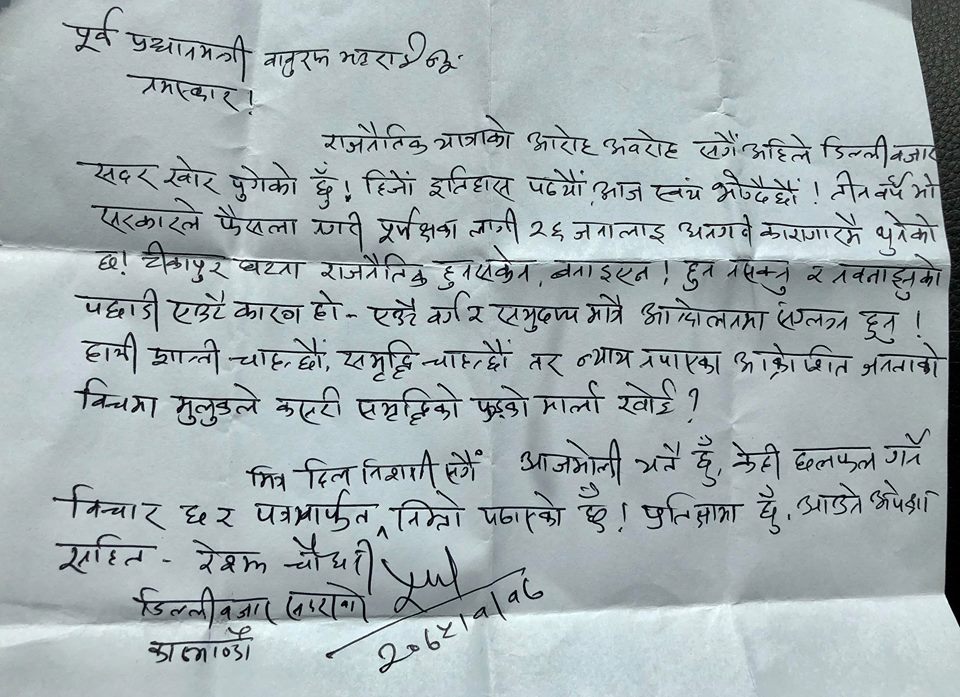 पूर्व प्रधानमन्त्री बाबुराम भट्टराईज्यू
नमस्कार!
राजनैतिक यात्राको आरोह अवरोह सगैं अहिले डिल्लीबजार
सदर खोर पुगेको छुँ! हिजो इतिहास पढ्यौं, आज स्वयं भोग्दैछौं! तीन वर्ष भो
सरकारले फैसला नगरी पूर्पक्षका लागी २६ जनालाइ अनगन्ते कारागारमै थुनेको
छ! टीकापुर घटना राजनैतिक हुनसकेन, बनाइएन! हुन नसक्नु र नबनाइनुको
पछाडी एउटै कारण हो - एउटै वर्ग र समुदाय मात्रै आन्दोलनमा संलग्न हुनु!
हामी शान्ती चाहन्छौं, समृद्धि चाहन्छौं तर न्याय नपाएका आक्रोशित जनताको
बिचमा मुलुकले कसरी समृद्धिको फुड्को मार्ला खोई?
मित्र दिल निशानी सगैं आजभोली यतै छुँ, केही छलफल गर्ने
बिचार छ र पत्रमार्फत निम्तो पठाएको छुँ! प्रतिक्षामा छुँ, आउने अपेक्षा
सहित - रेशम चौधरी
डिल्लीबजार सदरखोर
काठमाण्डौं
२०७५।१।१७